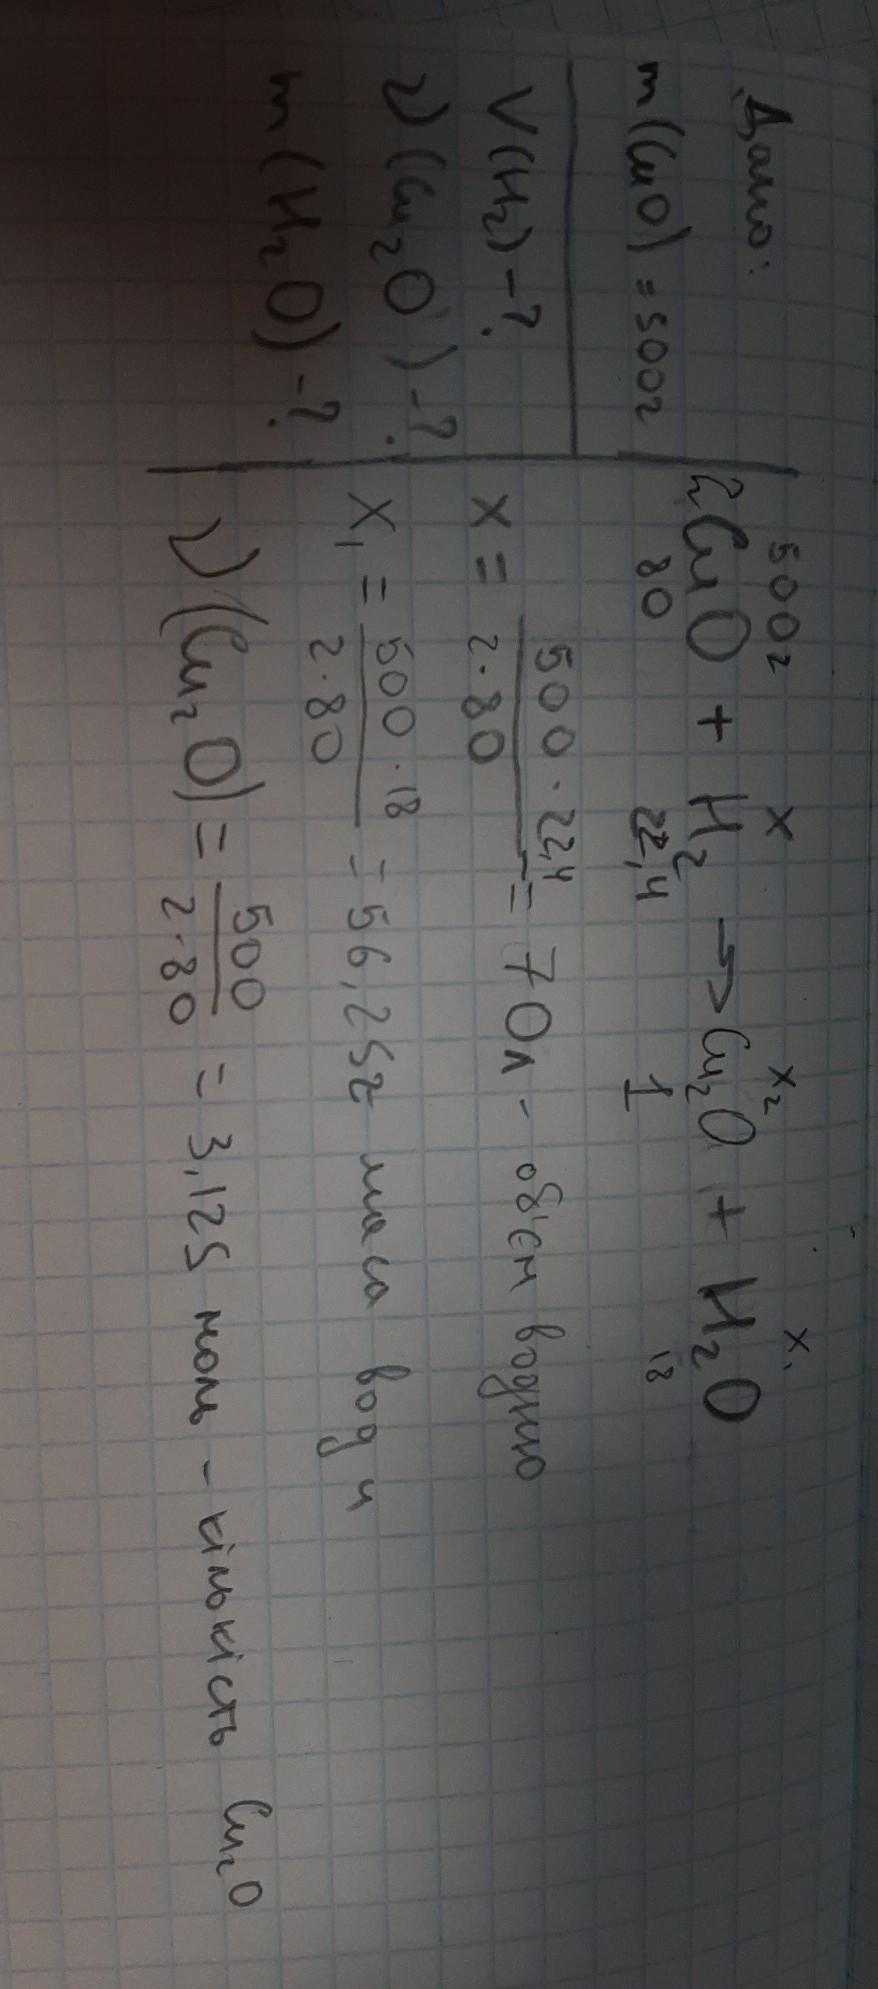 Дано:
m(CuO) = 500г
V(H₂) - ?
ν(Cu₂O) - ?
m(H₂O) - ?
500г x x₂ x₁
2CuO + H₂ → Cu₂O + H₂O
80 22,4 1 18
x = 500 · 22,4 / 2 · 80 = 70л - об'єм водню
x₁ = 500 · 18 / 2 · 80 = 56,25г маса води
ν(Cu₂O) = 500 / 2 · 80 = 3,125 моль - кількість Cu₂O